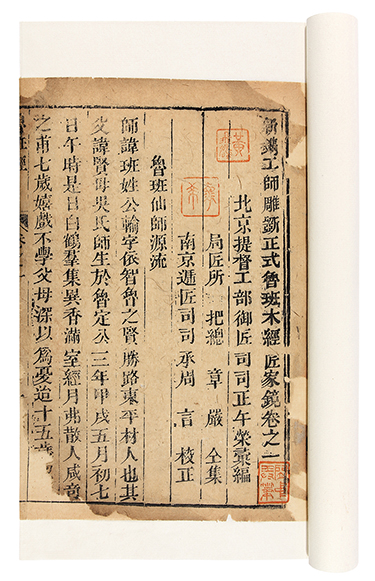 新鐫工師雕斲正式魯班木經匠家鏡卷之一
北京提督工部御匠司司正午榮彙編
局匠所把總章嚴仝集
南京遞匠司司承周言校正
魯班仙師源流
師諱班姓公輸字依智魯之賢勝路東平村人也其
父諱賢母吳氏師生於魯定公三年甲戌五月初七
日午時是日白鶴羣集異香滿室經月弗散人咸竒
之甫七歲嬉戲不學父母深以為憂迨十五歲
魯班經